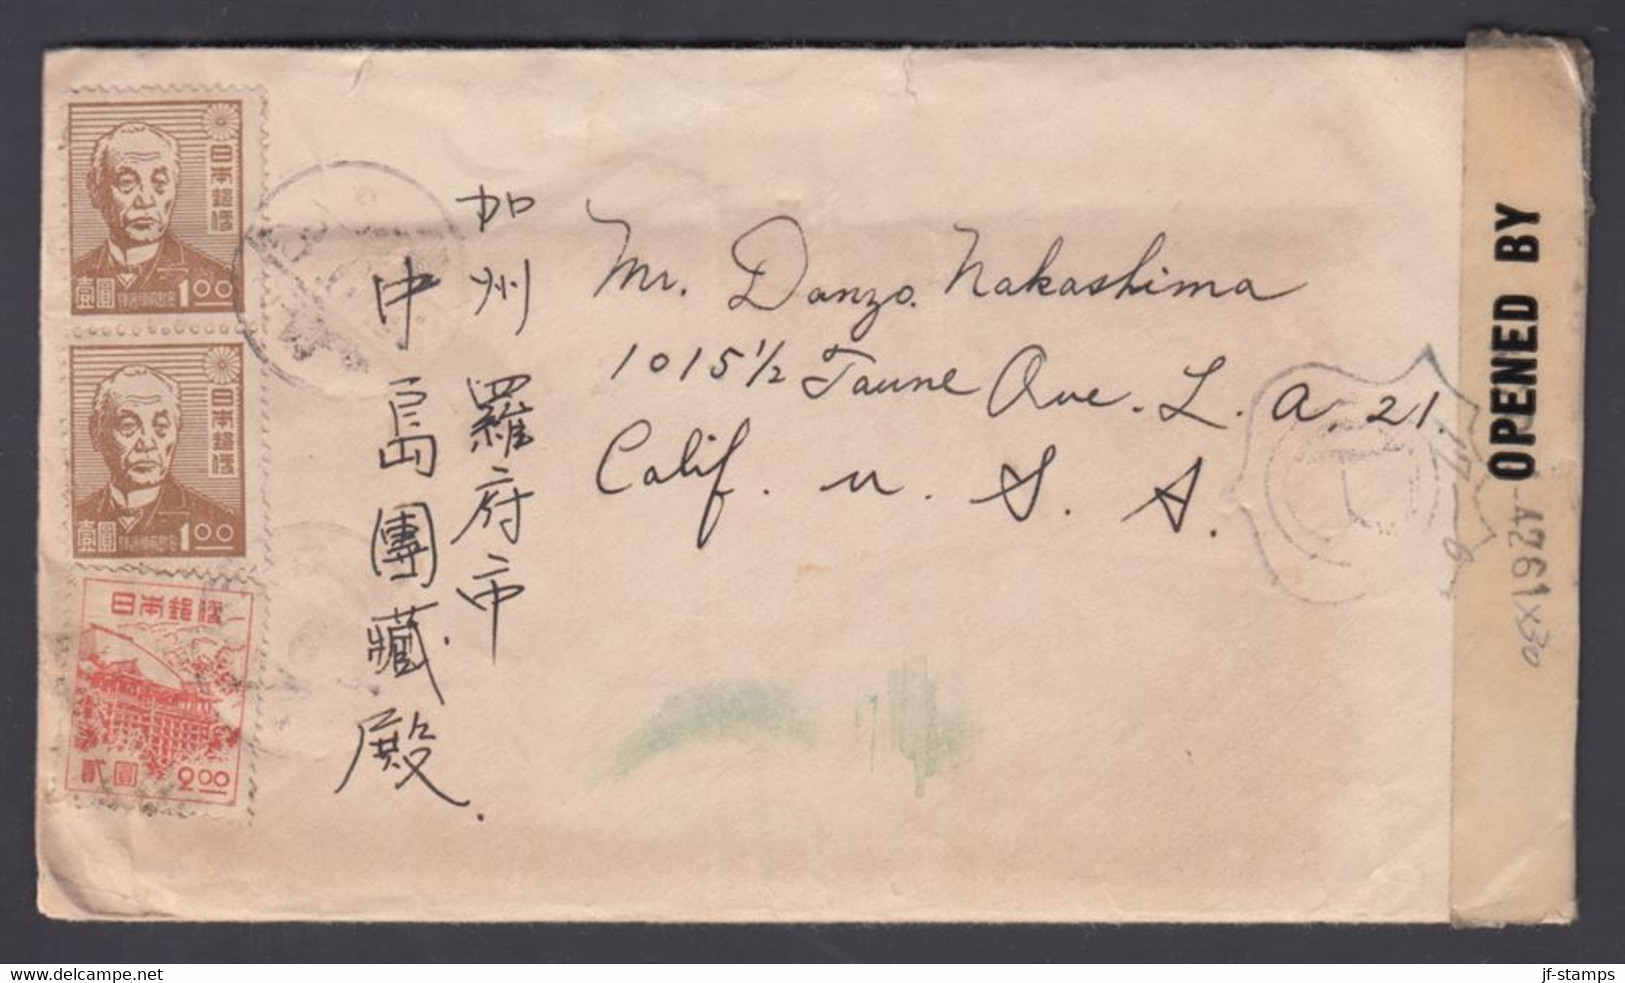 日本郵便
壹圓
1.00
日本郵便
壹圓
1.00
日本郵便
貳圓
2.00
加州羅府市
中島團藏殿.
Mr. Danzo. Nakashima
1015½ Taune Ave. L. A. 21.
Calif. U. S. A.
OPENED BY
4261x30
jf-stamps